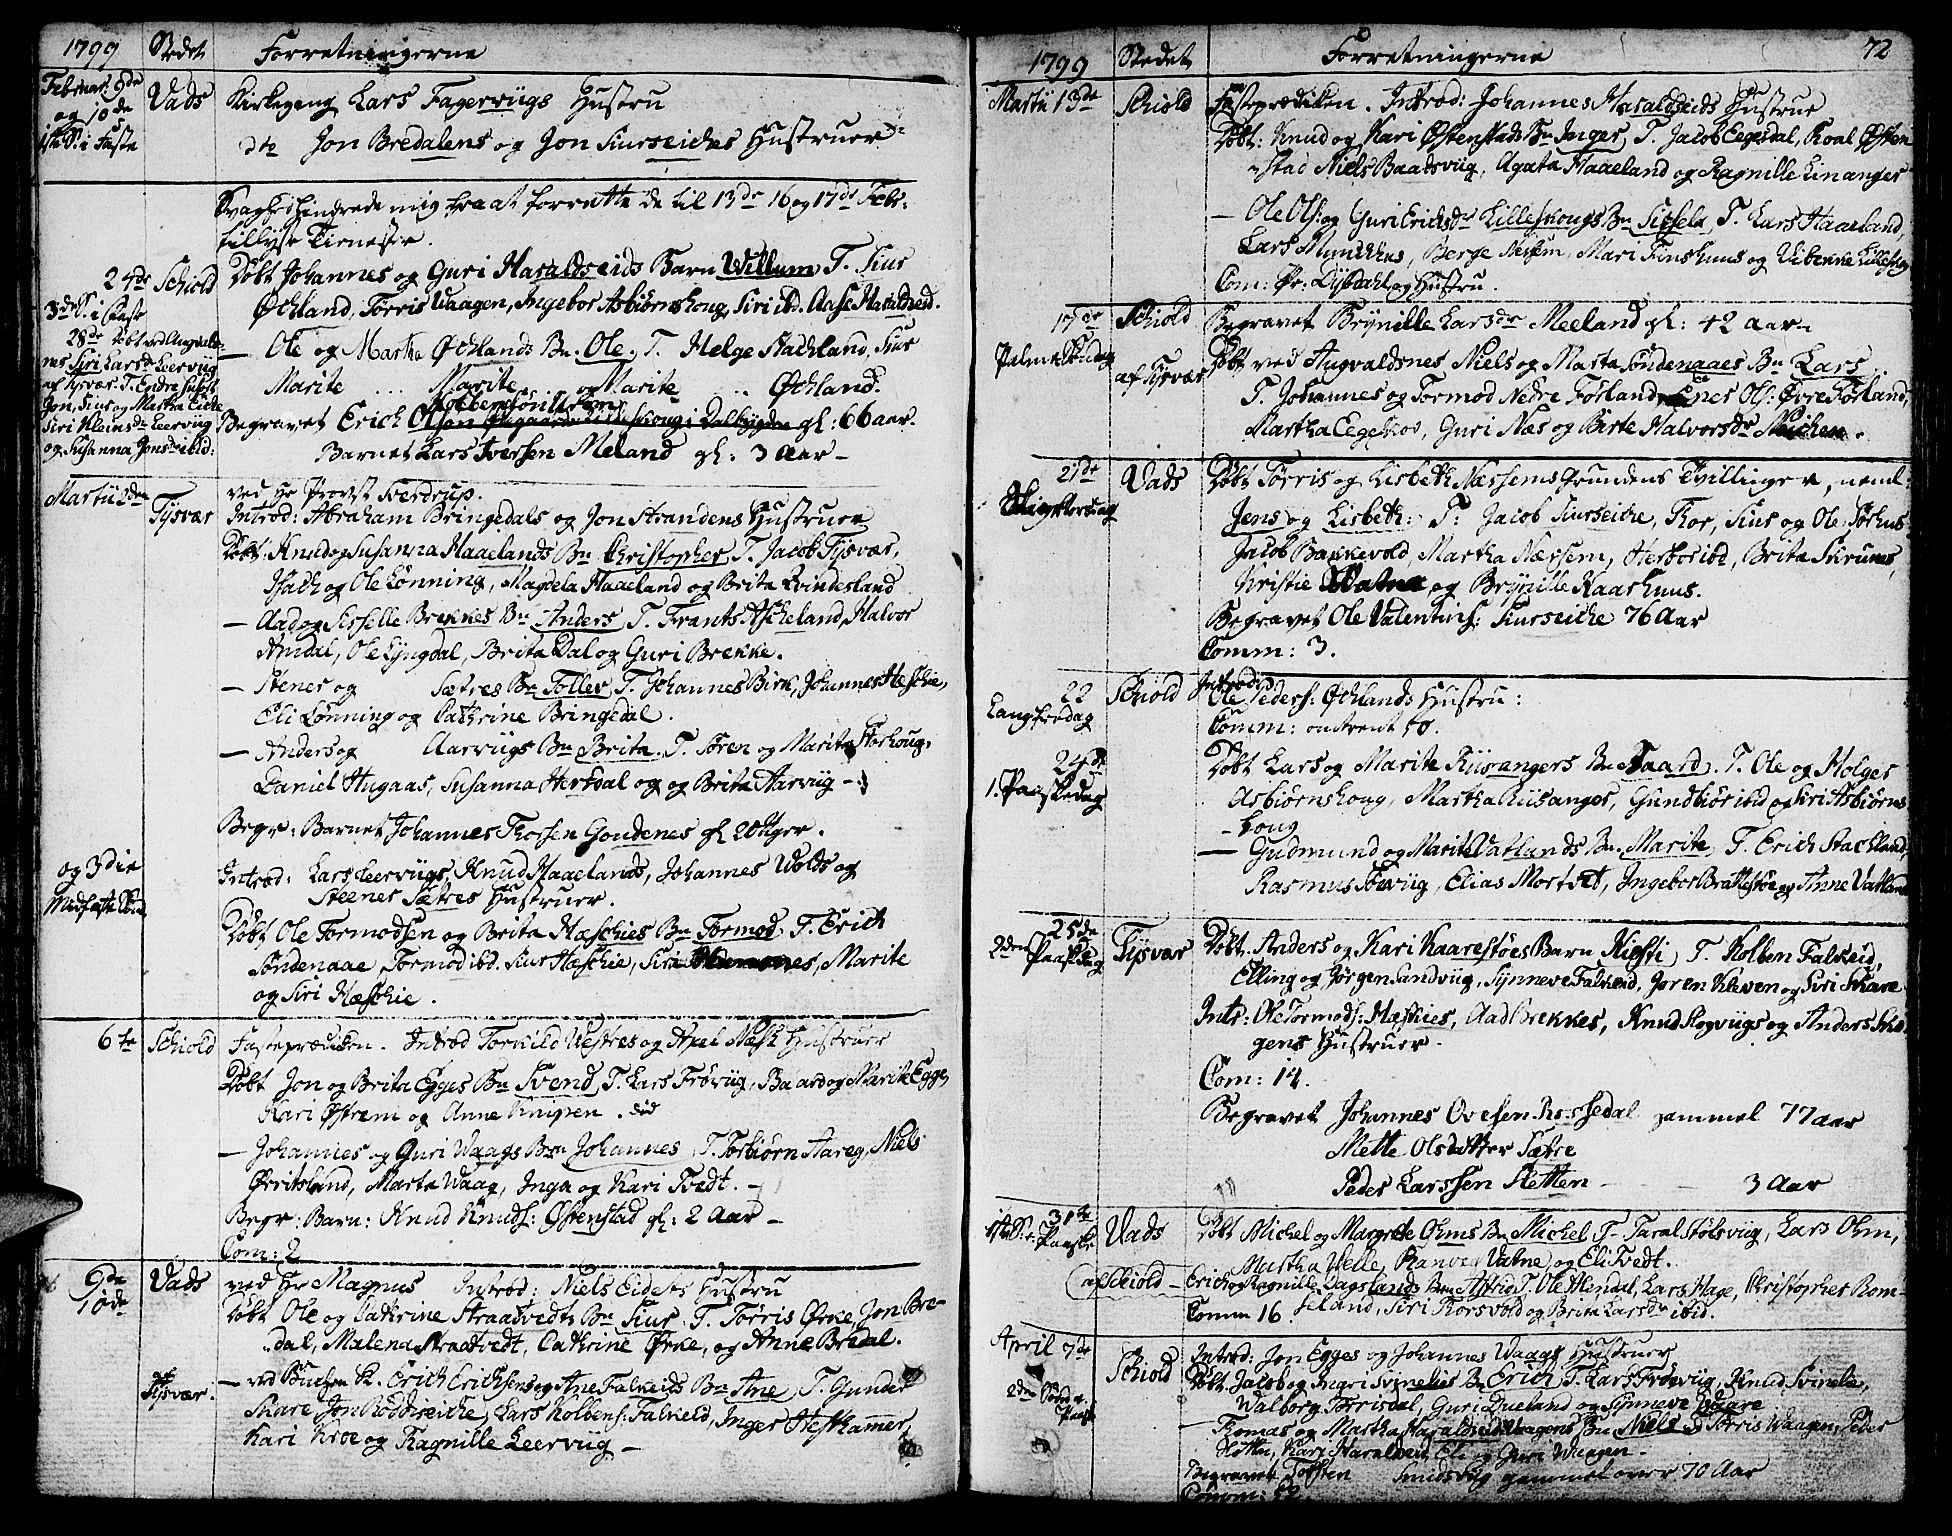 1799 Stedet Forretningerne
Februar: 9de Vads Kirkegang Lars Fagerviigs Hustru
og 10de
1ste S: i Faste dto Jon Bredalens og Jon Siurseickes Hustruer
Svaghed hindrede mig fra at forrette de til 13de 16 og 17de Febr:
tillyste Tienester.
24de Schiold Døbt Johannes og Guri Haraldseids Barn Willum, T. Siur
3de S. i Faste Øchland, Tørris Vaagen, Ingebor Asbiørnshoug, Siri ibd. Aase Haraldseid.
28de Døbt ved Augvalds-
nes Siri Larsdr Leervig
af Tysvær. T. Endre
Jon, Siur og Martha Eide
Siri Kleinsdr Leervig
og Susanna Jonsdr ibid:
— Ole og Martha Øchlands Bn. Ole. T. Helge Stachland, Siur
Marite ... Marite ... og Marite .. Øchland.
Begravet Erich gl: 66 aar.
Barnet Lars Iversen Meland gl: 3 Aar —
Martii 2den Tysvær ved Hr Provst Sverdrup.
Introd: Abraham Bringedals og Jon Strandens Hustruer
Døbt: Knud og Susanna Haaelands Bn Christopher, T. Jacob Tysvær,
Isach og Ole Lønning, Magdela Haaeland og Brita Qvindesland
— Aad og Sisselle Brekkes Bn Anders, T. Frants Ascheland, Halvor
Amdal, Ole Lyngdal, Brita Dal og Guri Brekke.
— Stener og Sætres Bn Tollev, T. Johannes Birk, Johannes Heschie,
Eli Lønning og Cathrine Bringedal.
— Anders og Aarviigs Bn Brita. T. Søren og Marita Storhoug,
Daniel Hugaas, Susanna Hersdal og og Brita Aarviig —
Begr: Barnet Johannes Thorsen Goudenes gl 20 Uger.
og 3die Introd: Lars Leervigs, Knud Haaelands, Johannes Wolds og
Midfaste Sønd. Steener Sætres Hustruer.
Døbt Ole Tormodsen og Brita Hæschies Bn Tormod. T. Erich
Søndenaae, Tormod ibd. Siur Hæschie, Siri Marite
og Siri Hæschie.
6te Schiold Fasteprædiken. Introd Torkild Vestres og Axel Næss Hustruer
Døbt Jon og Brita Egges Bn Svend, T. Lars Frøviig, Baard og Marite Egge,
Kari Østrem og Anne Knipen.
— Johannes og Guri Waags Bn Johannes, T. Torbiørn Aareg, Niels
Ørritsland, Marta Waag, Inga og Kari Tvedt.
Begr: Barn: Knud Knuds: Østenstad gl: 2 Aar —
Com: 2
9de Vads ved Hr Magnus Introd: Niels Eidets Hustru
10de Døbt Ole og Cathrine Straatvedts Bn Siur. T. Tørris Ørke, Jon Bre-
dal, Malena Straatvedt, Cathrine Ørke, og Anne Bredal.
af Tysvær. — ved Erich Erichsens og Ane Falkeids Bn Ane, T. Gunder
Skare, Jon Lars Kolbens: Falkeid, Inger Hesthammer,
Kari Kroe og Ragnille Leerviig —
1799 Stedet Forretningerne 72
Martii 13de Schiold Fasteprædiken. Introd: Johannes Haraldseids Hustrue
Døbt: Knud og Kari Østenstads Bn Inger, T. Jacob Eegesdal, Koal Østen-
stad Niels Baadsviig, Agata Haaeland og Ragnille Linanger
— Ole Ols: og Guri Erichsdr Lilleskougs Bn Sissela, T. Lars Haaeland,
Lars Munchhus, Berge Nessem, Mari Finshuus og Vibekke Lilleskoug
Com: Pr: og Hustru.
17de Schiold Begravet Brynille Larsdr Meeland gl: 42 aar —
Palme Søndag af Tysvær Døbt ved Augvaldsnes Niels og Marta Søndenaaes Bn Lars
T. Johannes og Tormod Nedre Førland, Ener Ols: Øvre Førland,
Martha Eegeskov, Guri Næs og Birte Halvorsdr
21de Vads Døbt Tørris og Lisbeth Næssems Grundens Tvillinger, neml:
Skiertorsdag Jens og Lisbeth: T: Jacob Siurseicke, Thor, Siur og Ole Sørhus
Jacob Bakkevold, Martha Næssem, Herbor ibd, Brita Skruns,
Kristie og Brynille Kaarhuus.
Begravet Ole Valentins: Siurseicke 76 Aar
Comm: 3.
22 Schiold Introd: Ole Peders: Øchlands Hustru:
Langfredag Comm: omtrent 50.
24de Døbt Lars og Marite Riisangers Bn Baard. T. Ole og Holger
1. Paaskedag Asbiørnshoug, Martha Riisanger, Gundbiør ibid og Siri Asbiørns-
houg
— Gudmund og Marite Vatlands Bn. Marite. T. Erich Stachland,
Rasmus Tøeviig, Elias Mortvet, Ingebor Brattestøe og Anne Vatland
25de Tysvær Døbt: Anders og Kari Kaarestøes Barn Kiesti, T. Kolben Falkeid,
2den Paaskedag Elling og Jørgen Sandviig, Synneve Falkeid, Joren Kleven og Siri Skare
Intr: Ole Tormods: Hæskies, Aad Brekkes, Knud Slogviigs og Anders Skaa-
gens Hustruer.
Com: 14.
Begravet Johannes Ovesen Rossedal gammel 77 aar
Mette Olsdatter Sætre
Peder Larssen Sletten — — 3 Aar
31te Vads Døbt Michel og Margrete Ohms Bn Michel T. Taral Stølsviig, Lars Ohm,
1ste S. e. Paaske Martha Velle, Ranveg Vatne, og Eli Tvedt.
af Schiold — Erich og Ragnille Dagslands Bn Astrid. T. Ole Hendal, Lars Hage, Christopher Rom-
Comm 16. seland, Siri Thorsvold og Brita Larsdr ibid.
April 7de Schiold Introd: Jon Egges og Johannes Waags Hustruer
2den Sønd. e. Paaske Døbt Jacob og Ingri Svinelies Bn Erich T. Lars Frøeviig, Knud Svinelie,
Walborg Torrisdal, Guri Dueland og Synneve Waare
— Tomas og Martha Haraldseidvaagens Bn Niels T. Tørris Waagen, Peder
Slottu, Kari Haraldseid, Eli og Guri Waagen.
Begravet Torsten Smidsviig gammel over 70 Aar
Comm: 52.